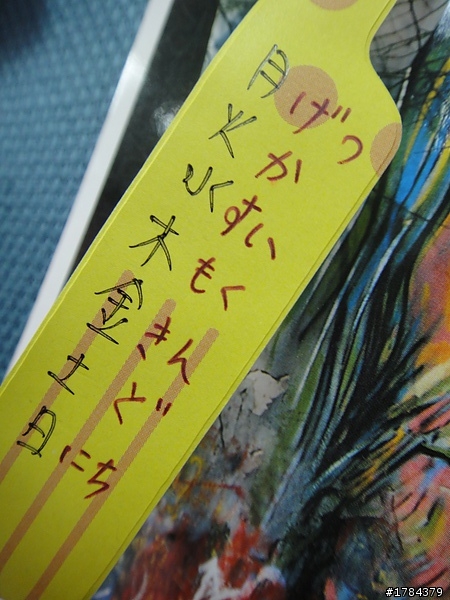 月 げつ
火 か
水 すい
木 もく
金 きん
土 ど
日 にち
#1784379